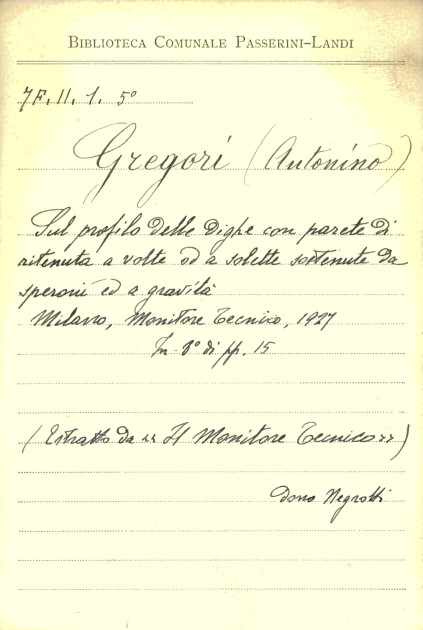 BIBLIOTECA COMUNALE PASSERINI-LANDI
7F. II. 1. 5°
Gregori (Antonino)
Sul profilo delle dighe con parete di
ritenuta a volte od a solette sostenute da
speroni ed a gravità
Milano, Monitore Tecnico, 1927
In-8° di pp. 15
(Estratto da «Il Monitore Tecnico»)
Dono Negrotti